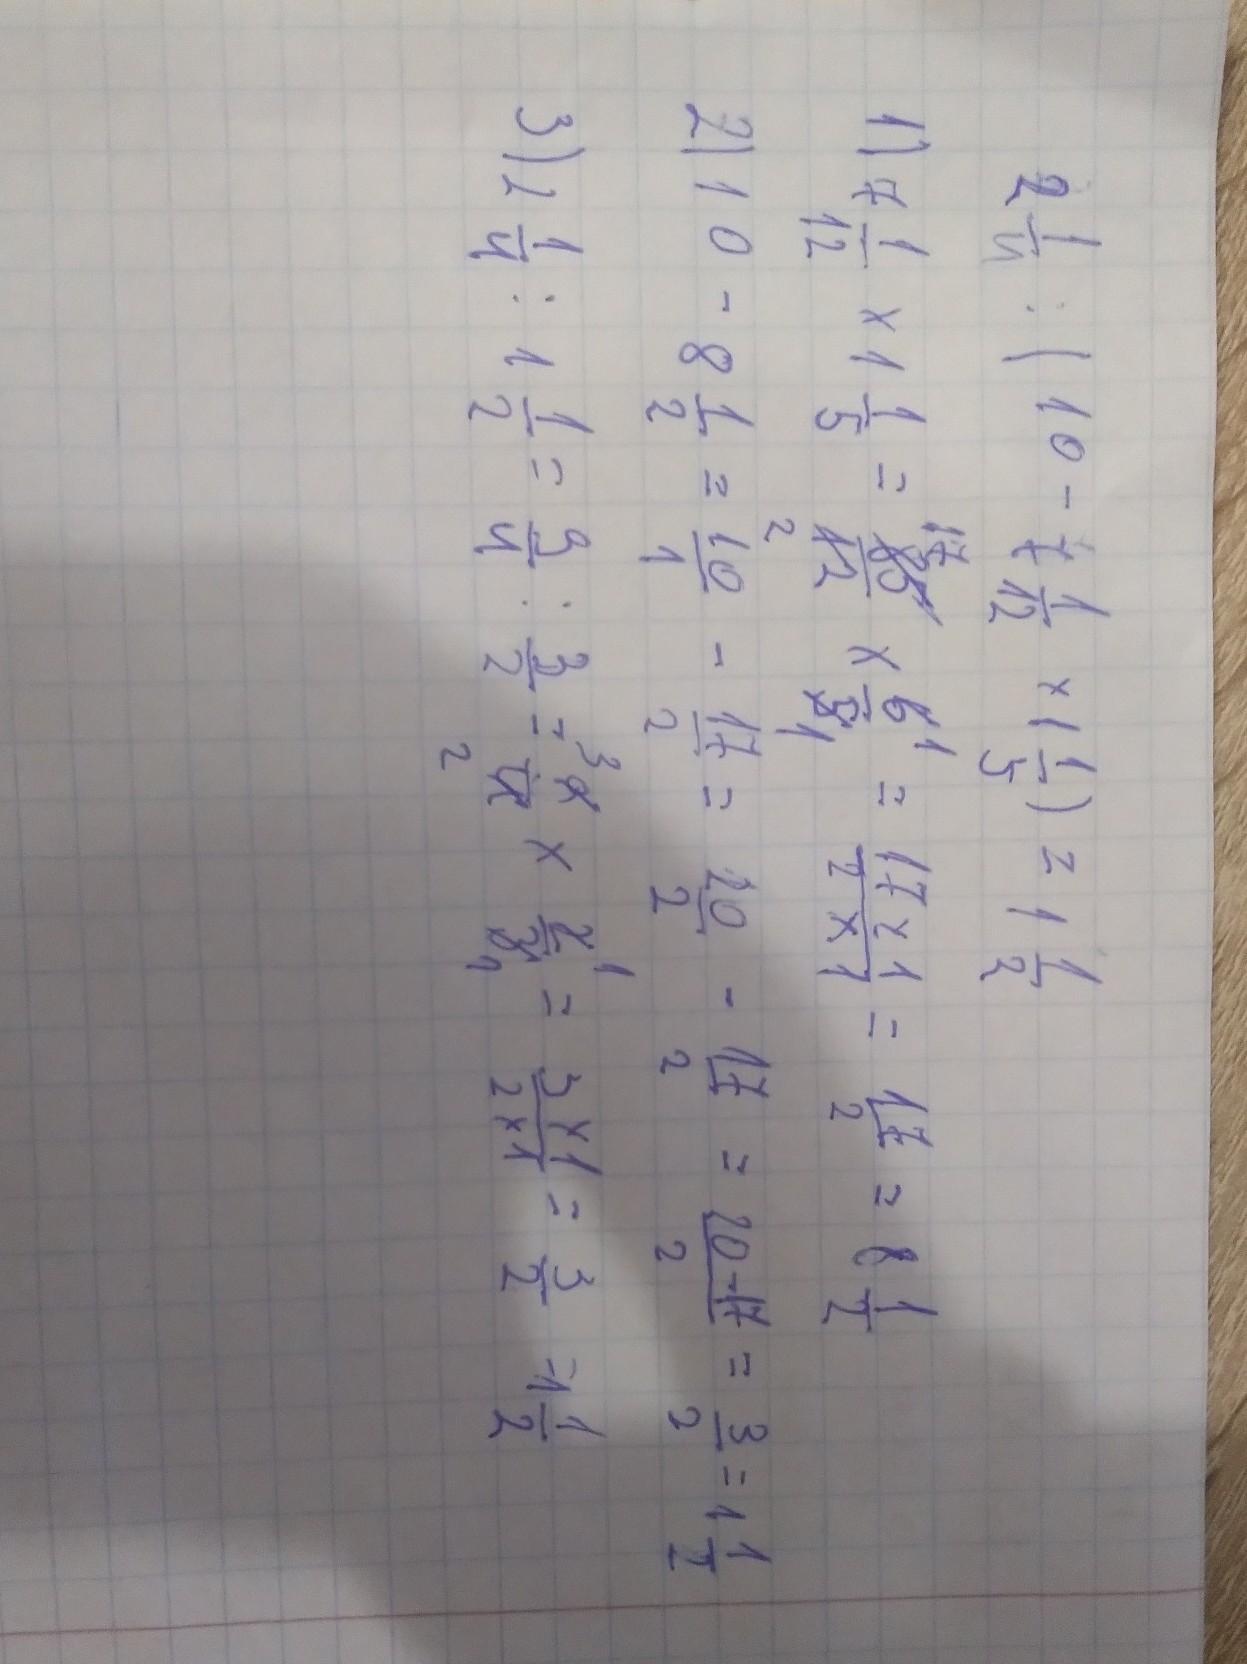 2 1/4 : (10 - 7 1/12 × 1 1/5) = 1 1/2
1) 7 1/12 × 1 1/5 = 85/12 × 6/5 = 17×1/2×1 = 17/2 = 8 1/2
2) 10 - 8 1/2 = 10/1 - 17/2 = 20/2 - 17/2 = 20-17/2 = 3/2 = 1 1/2
3) 2 1/4 : 1 1/2 = 9/4 : 3/2 = 9/4 × 2/3 = 3×1/2×1 = 3/2 = 1 1/2